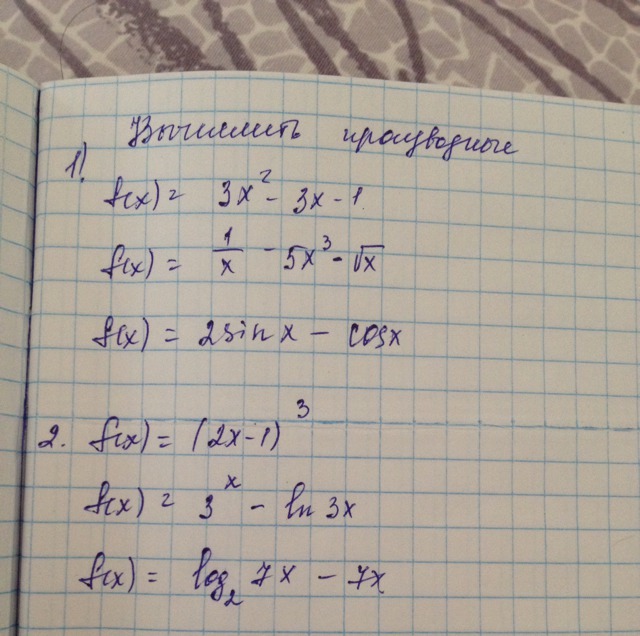 Вычислить производные
1) f(x) = 3x² - 3x - 1
f(x) = 1/x - 5x³ - √x
f(x) = 2sin x - cosx
2. f(x) = (2x-1)³
f(x) = 3ˣ - ln 3x
f(x) = log₂ 7x - 7x